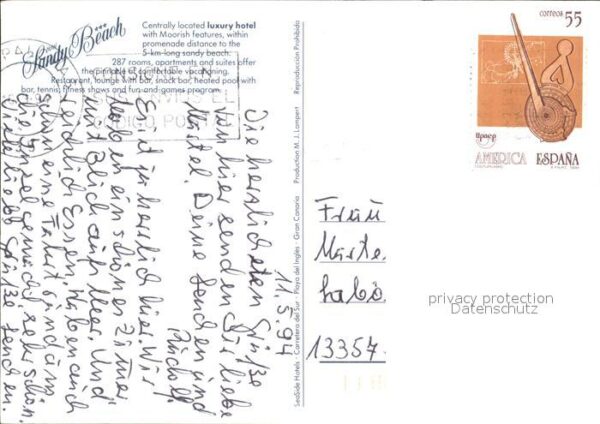 Sandy Beach
Centrally located luxury hotel
with Moorish features, within
promenade distance to the
5-km-long sandy beach.
287 rooms, apartments and suites offer
the pinnacle of comfortable vacationing.
Restaurant, lounge with bar, snack bar, heated pool with
bar, tennis, fitness shows and fun-and-games program.
Correos 55
Upaep
AMERICA ESPAÑA
SeaSide Hotels · Carretera del Sur · Playa del Inglés · Gran Canaria Production M. J. Lampert Reproduction Prohibida
11.5.94
Die herzlichsten Grüße
von hier senden Dir liebe
Deine und
Rudolf
Es ist herrlich hier. Wir
haben ein schönes Zimmer
mit Blick aufs Meer. Und
reichlich Essen, haben auch
schon eine Fahrt rund um
die Insel gemacht, sehr schön.
liebe Grüße senden.
Frau
13357
privacy protection
Datenschutz